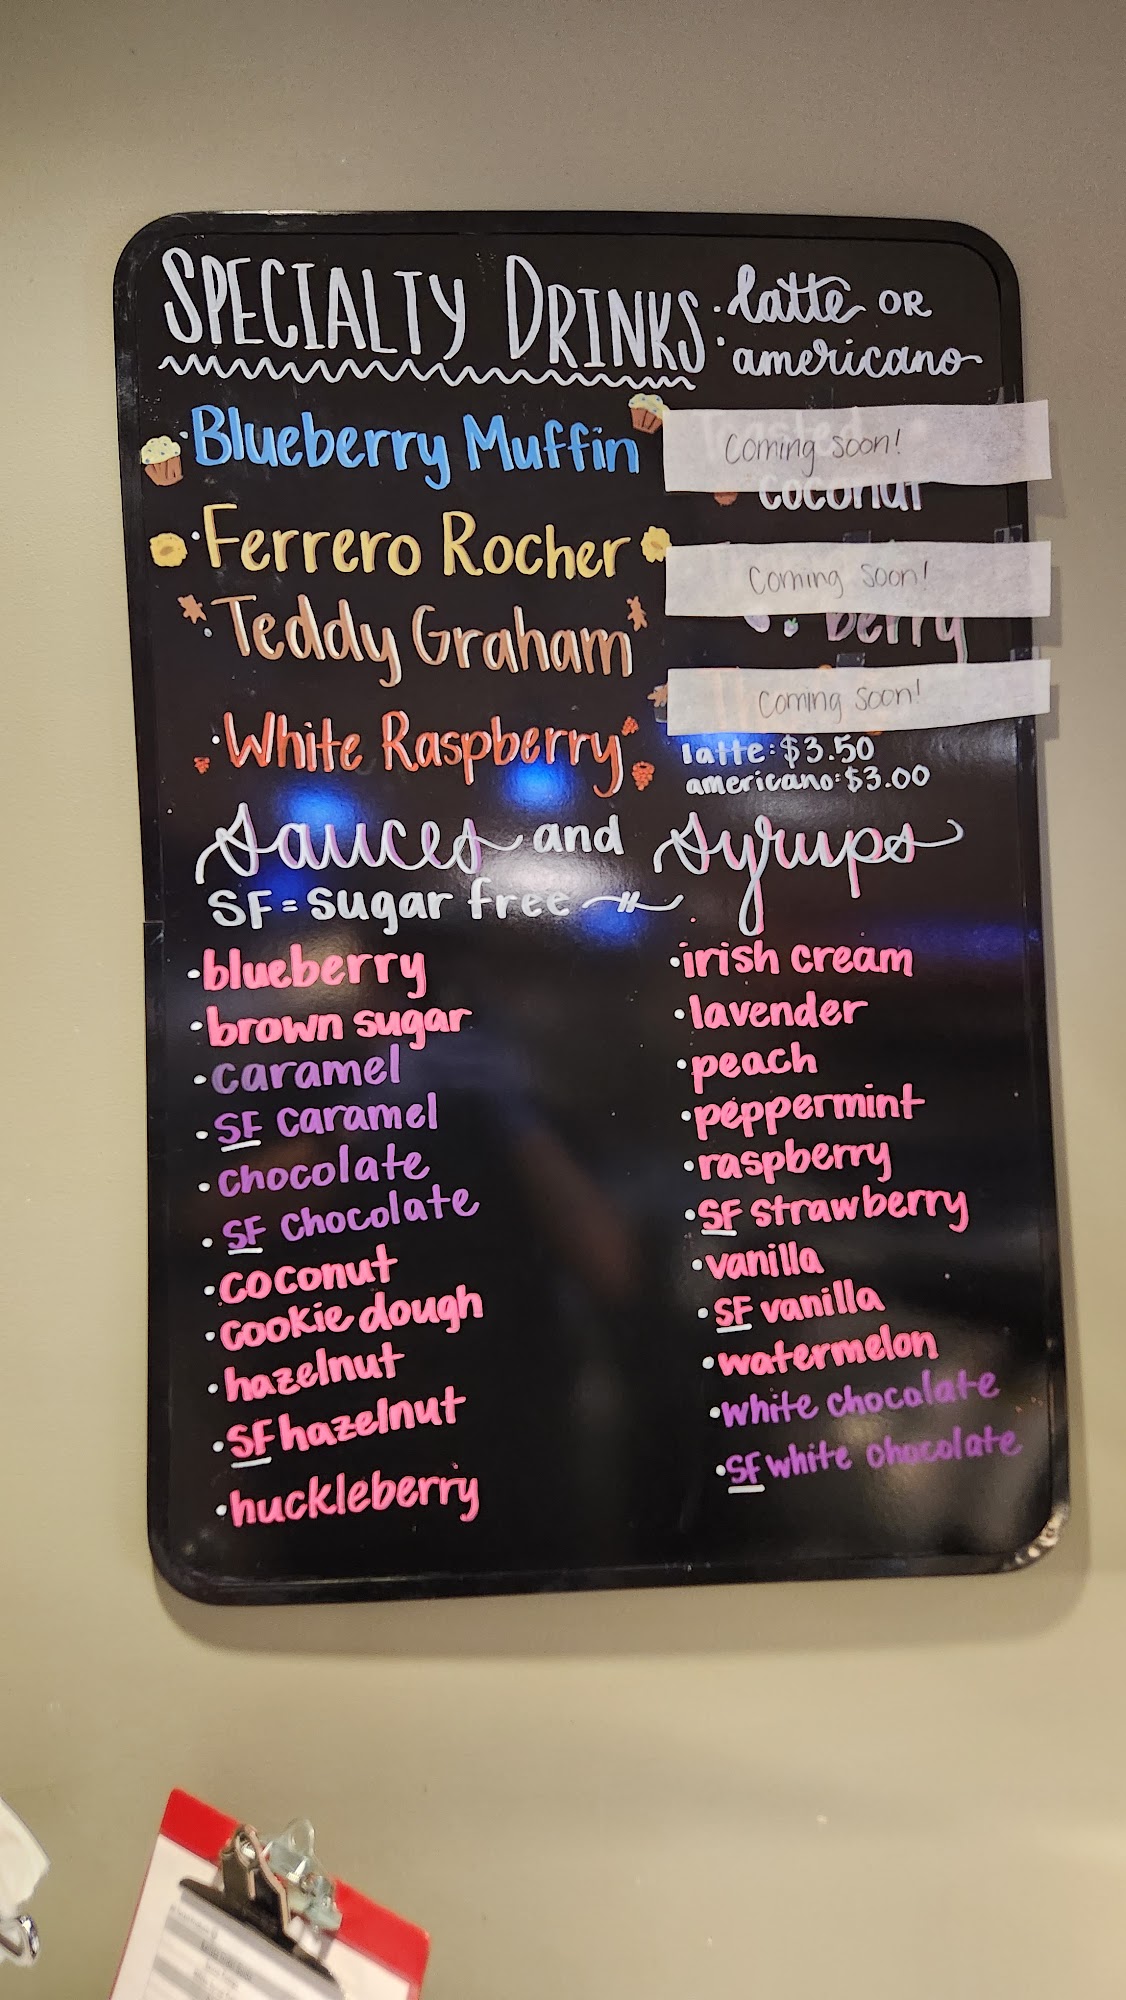 SPECIALTY DRINKS
• latte OR
• americano
• Blueberry Muffin
• Ferrero Rocher
• Teddy Graham
• White Raspberry
Coming soon!
coconut
Coming soon!
berry
Coming soon!
latte: $3.50
americano: $3.00
Sauces and Syrups
SF = sugar free
• blueberry
• brown sugar
• caramel
• SF caramel
• chocolate
• SF chocolate
• coconut
• cookie dough
• hazelnut
• SF hazelnut
• huckleberry
• irish cream
• lavender
• peach
• peppermint
• raspberry
• SF strawberry
• vanilla
• SF vanilla
• watermelon
• white chocolate
• SF white chocolate